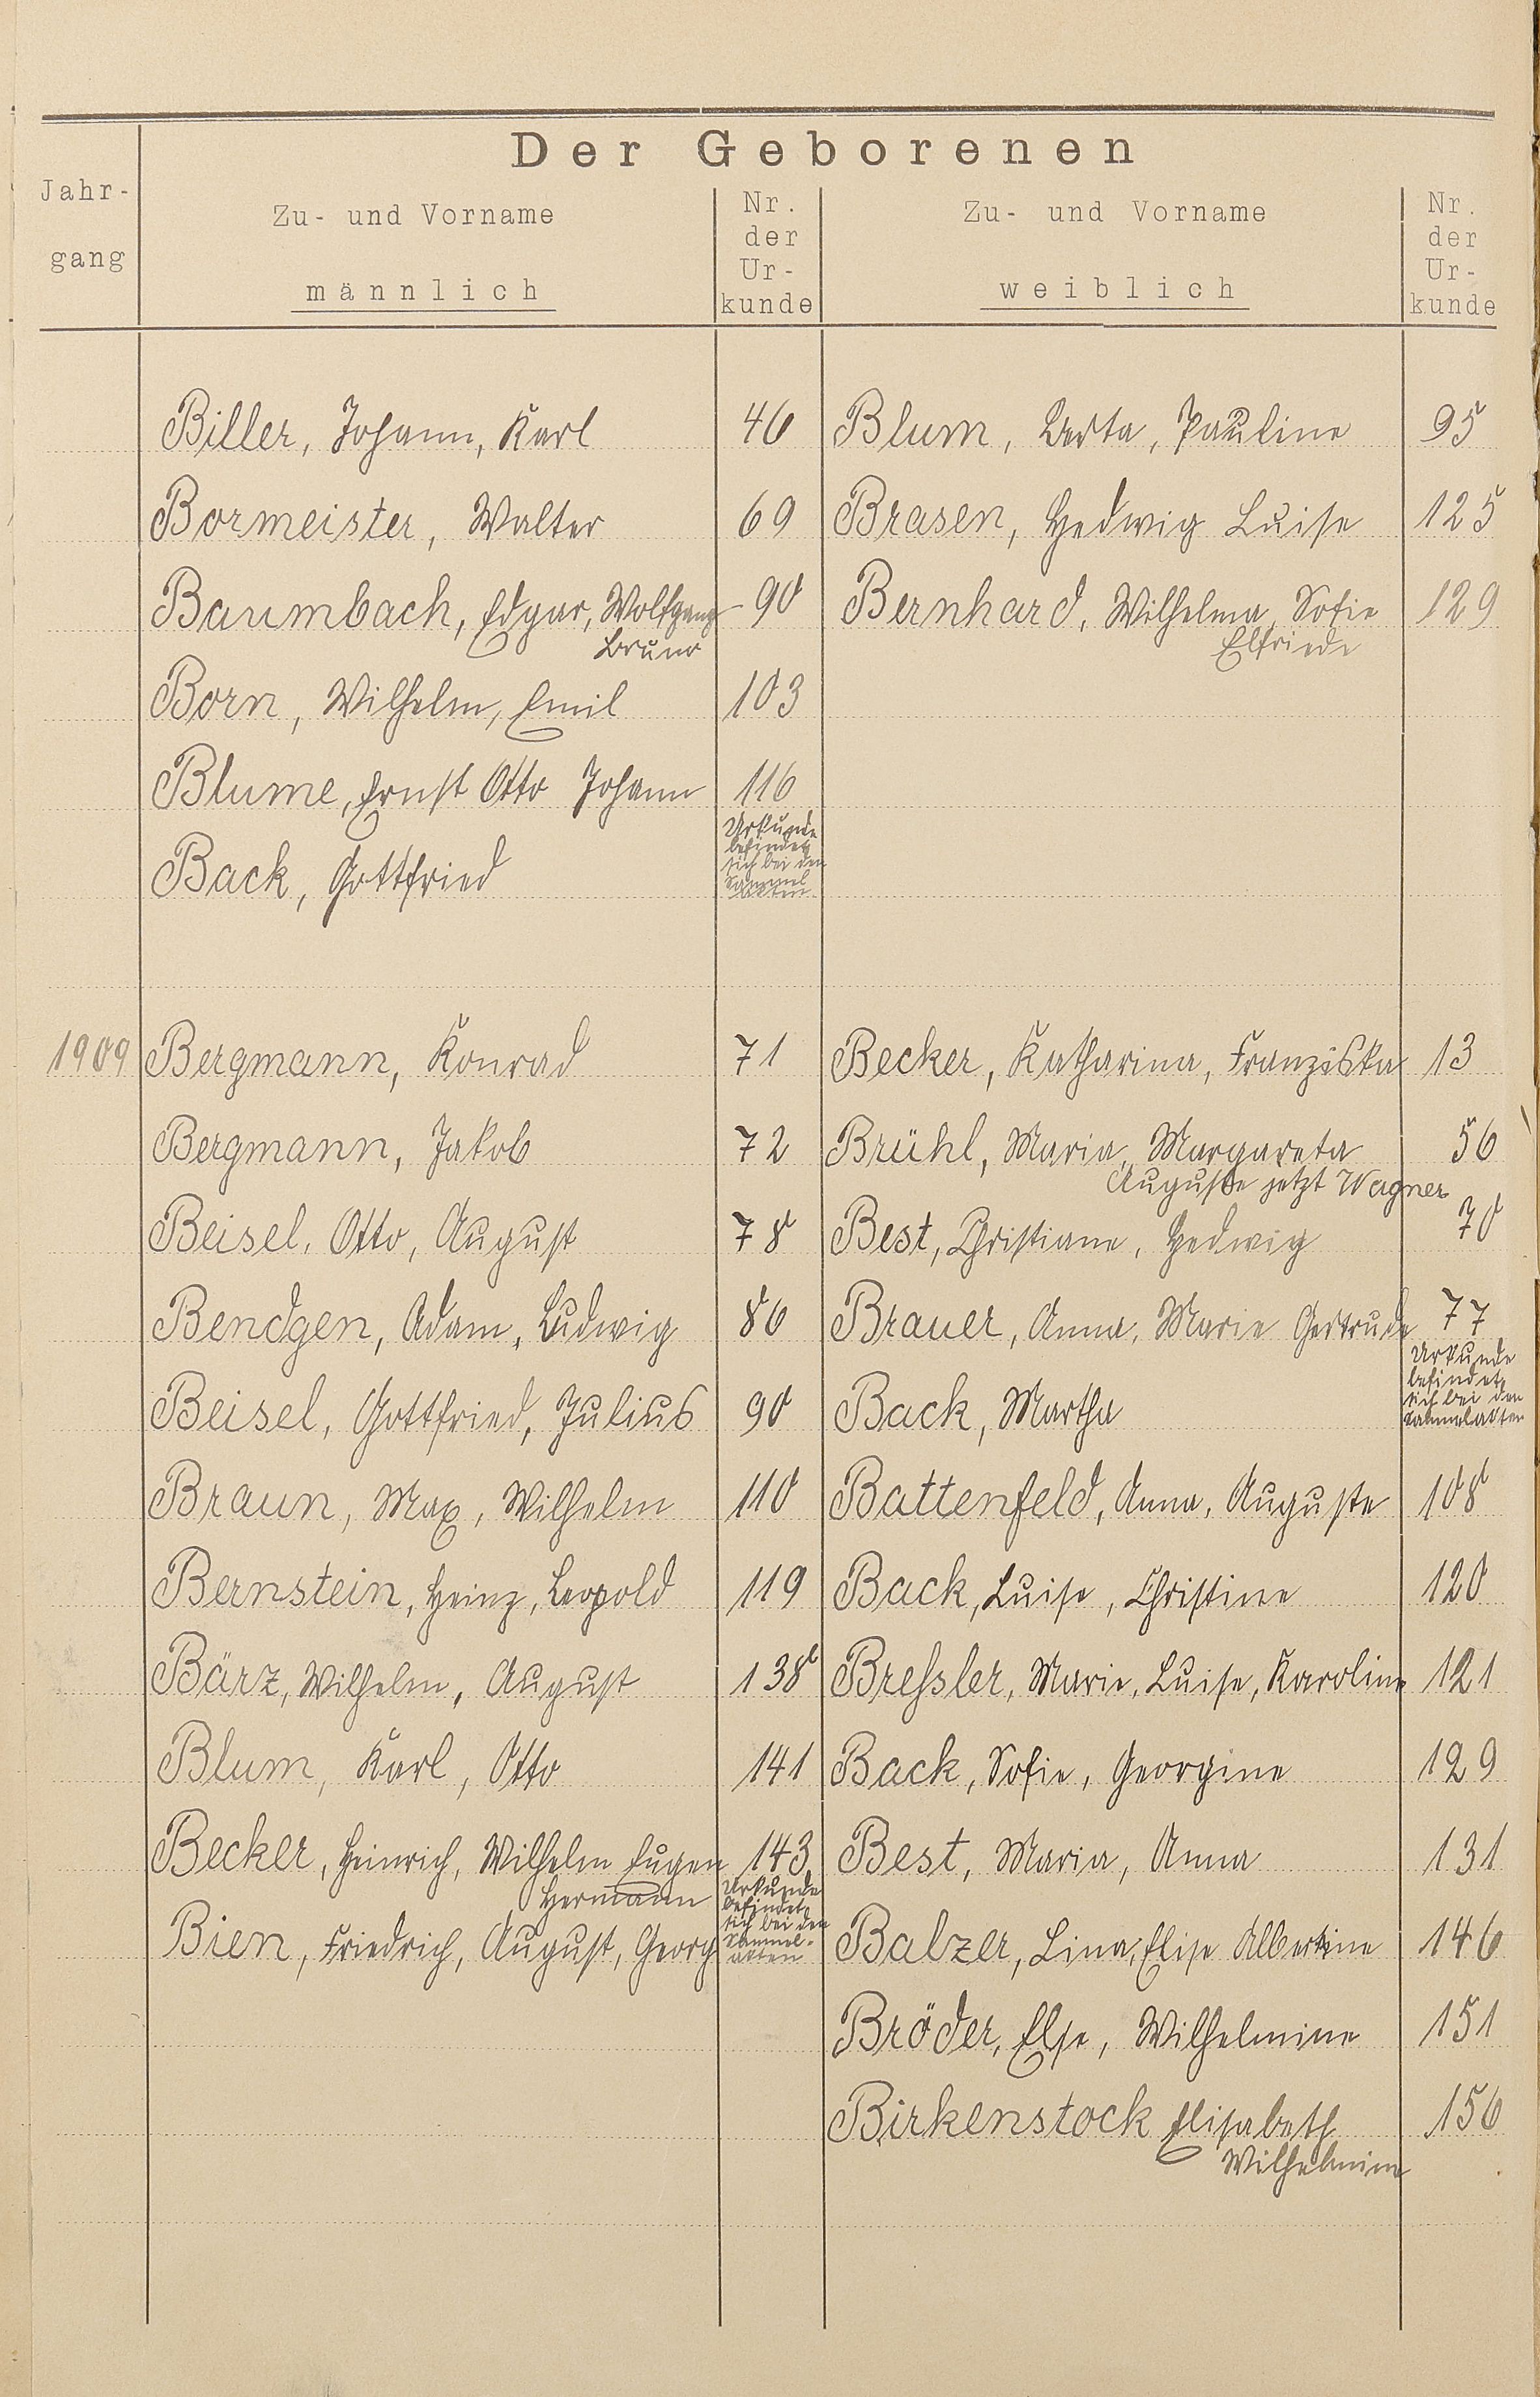 Der Geborenen
Jahr-
gang
Zu- und Vorname
männlich
Nr.
der
Ur-
kunde
Zu- und Vorname
weiblich
Nr.
der
Ur-
kunde
Biller, Johann, Karl 46 Blum, Berta, Pauline 95
Bormeister, Walter 69 Brasen, Hedwig Luise 125
Baumbach, Edgar, Wolfgang 90 Bernhard, Wilhelma, Sofie 129
Bruno Elfriede
Born, Wilhelm, Emil 103
Blume, Ernst Otto Johann 116
Back, Gottfried Urkunde
befindet
sich bei den
Sammel
akten
1909 Bergmann, Konrad 71 Becker, Katharina, Franziska 13
Bergmann, Jakob 72 Brühl, Maria, Margareta 56
Auguste jetzt Wagner
Beisel, Otto, August 78 Best, Christiane, Hedwig 70
Bendgen, Adam, Ludwig 86 Brauer, Anna, Marie Gertrude 77
Beisel, Gottfried, Julius 90 Back, Martha Urkunde
befindet
sich bei den
Sammelakten
Braun, Max, Wilhelm 110 Battenfeld, Anna, Auguste 108
Bernstein, Heinz, Leopold 119 Back, Luise, Christine 120
Bärz, Wilhelm, August 138 Breſsler, Marie, Luise, Karoline 121
Blum, Karl, Otto 141 Back, Sofie, Georgine 129
Becker, Heinrich, Wilhelm Eugen 143 Best, Maria, Anna 131
Hermann
Bien, Friedrich, August, Georg Urkunde
befindet
sich bei den
Sammel-
akten
Balzer, Lina, Elise Albertine 146
Bröder, Else, Wilhelmine 151
Birkenstock Elisabeth 156
Wilhelmine